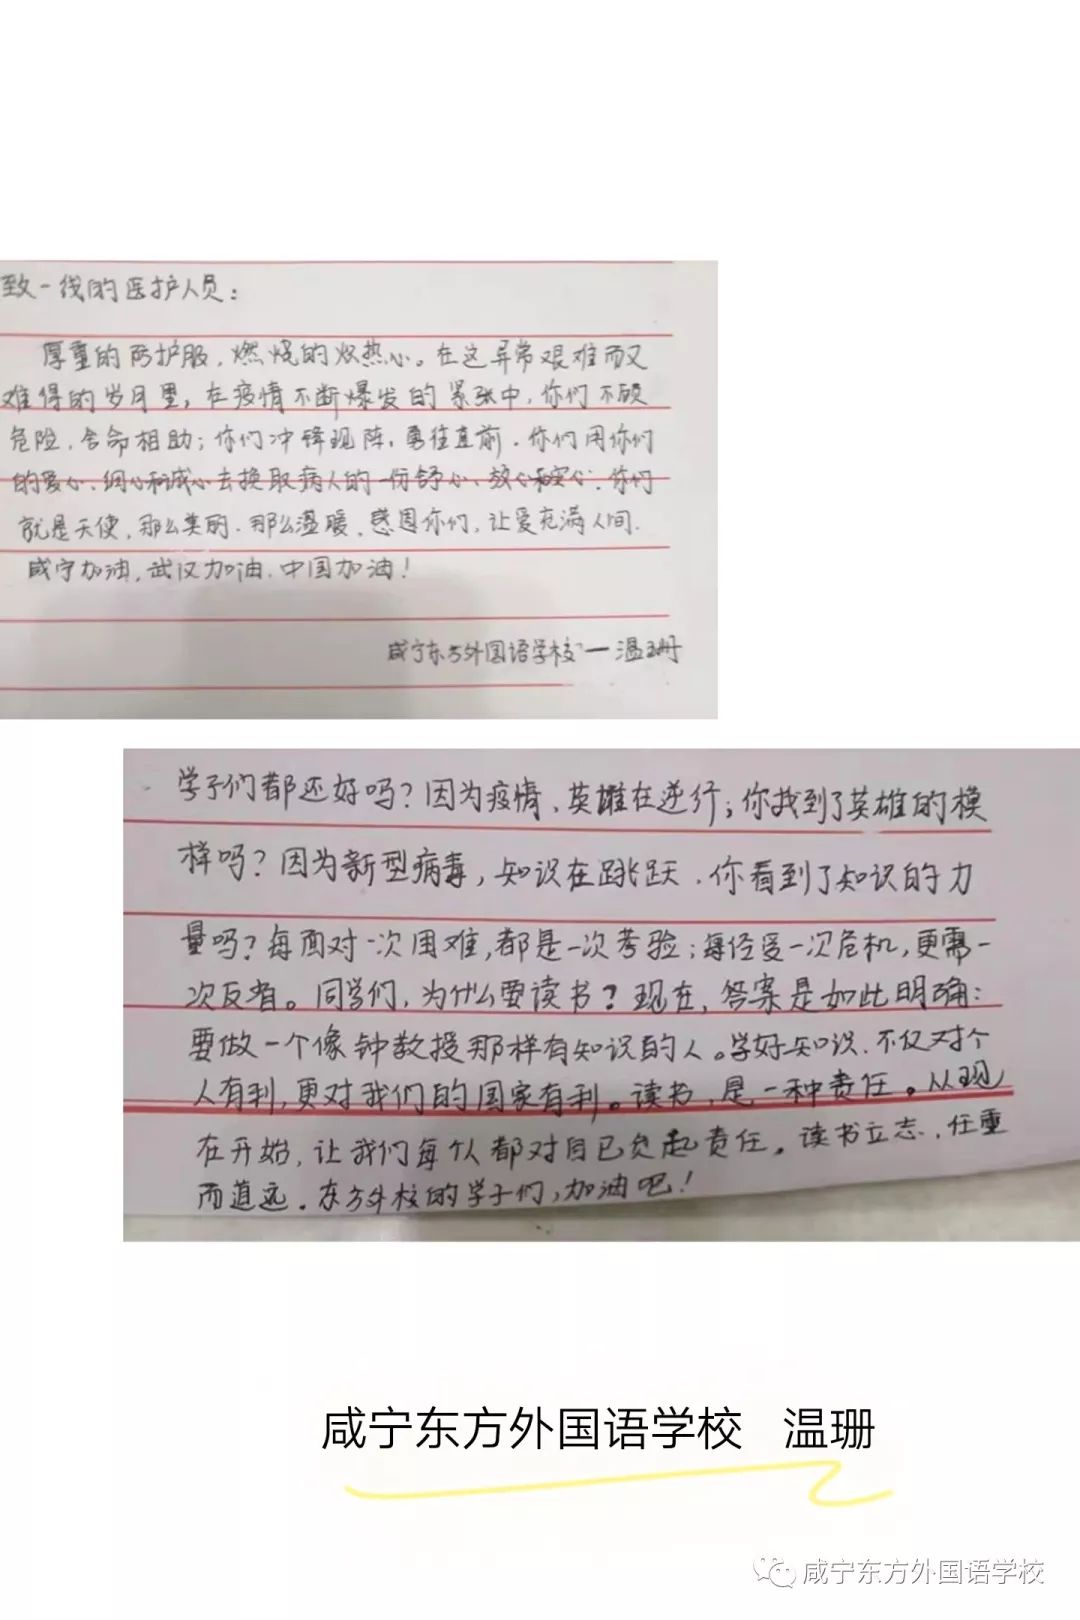 致一线的医护人员：
厚重的防护服，燃烧的炽热心。在这异常艰难而又
难得的岁月里，在疫情不断爆发的紧张中，你们不顾
危险，舍命相助；你们冲锋现阵，勇往直前．你们用你们
的爱心、细心和诚心去换取病人的一份舒心、放心和安心．你们
就是天使，那么美的．那么温暖，感恩你们，让爱充满人间．
咸宁加油，武汉加油．中国加油！
咸宁东方外国语学校一温珊
学子们都还好吗？因为疫情，英雄在逆行；你找到了英雄的模
样吗？因为新型病毒，知识在跳跃．你看到了知识的力
量吗？每面对一次困难，都是一次考验；每经受一次危机，更需一
次反省。同学们，为什么要读书？现在，答案是如此明确：
要做一个像钟教授那样有知识的人。学好知识．不仅对个
人有利，更对我们的国家有利。读书，是一种责任。从现
在开始，让我们每个人都对自己负起责任。读书立志，任重
而道远．东方外校的学子们，加油吧！
咸宁东方外国语学校 温珊
咸宁东方外国语学校